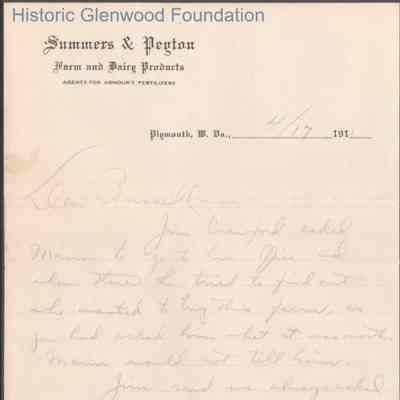 Historic Glenwood Foundation
Summers & Peyton
Farm and Dairy Products
AGENTS FOR ARMOUR'S FERTILIZERS
Plymouth, W. Va., 4/17 191
Dear
Jim Crawford asked
to go to
when there he tried to find out
who wanted to buy this farm, as
you had asked him what it was worth.
would not tell him.
Jim said we always asked